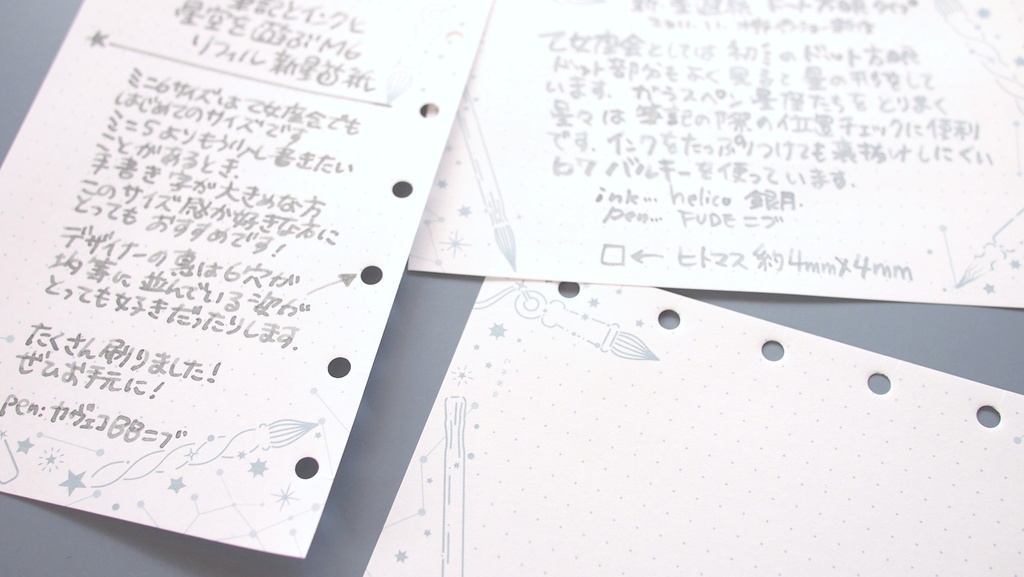 筆記とインクと
星空を遊ぶM6
リフィル 新星遊紙
ミニ6サイズは乙女座会でも
はじめてのサイズです
ミニ5よりもう少し書きたい
ことがあるとき、
手書き字が大きめな方
このサイズ感が好きな方に
とってもおすすめです!
デザイナーの恵は6穴が
均等に並んでいる姿が
とっても好きだったりします。
たくさん刷りました!
ぜひお手元に!
pen: カヴェコBBニブ
乙女座会としては初々のドット方眼
ドット部分もよく見ると星の形をして
います。ガラスペン星座たちをとりまく
星々は筆記の際の位置チェックに便利
です。インクをたっぷりつけても裏抜けしにくい
白フバルキーを使っています。
ink… helico 銀月.
pen… FUDEニブ
□← ヒトマス 約4mm×4mm